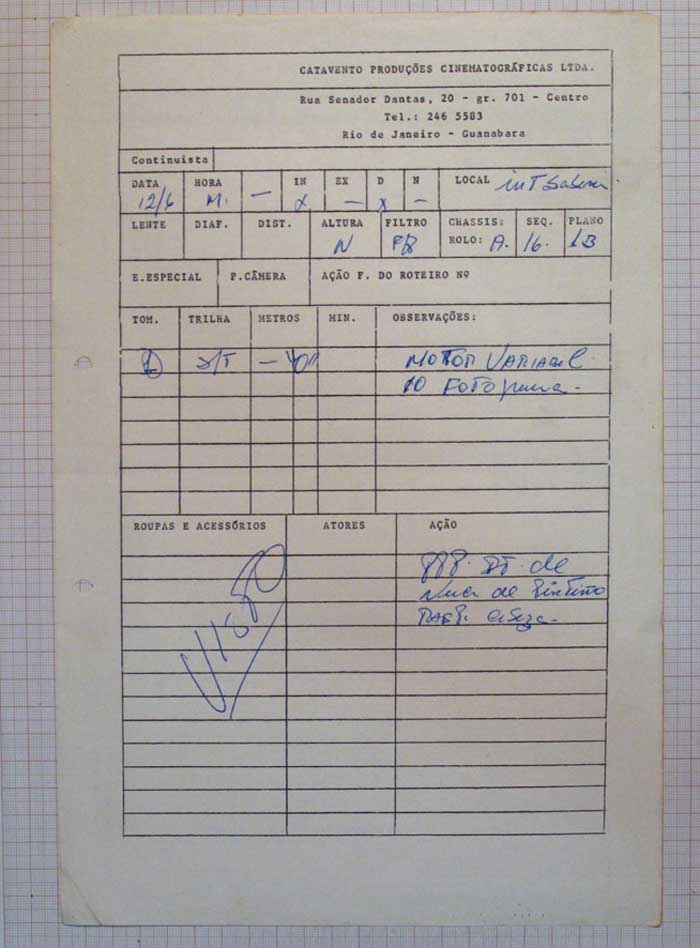 CATAVENTO PRODUÇÕES CINEMATOGRÁFICAS LTDA.
Rua Senador Dantas, 20 - gr. 701 - Centro
Tel.: 246 5583
Rio de Janeiro - Guanabara
Continuista
DATA HORA IN EX D N LOCAL
12/6 M. — X — X – INT
LENTE DIAF. DIST. ALTURA FILTRO CHASSIS: SEQ. PLANO
N ROLO: A. 16. 1B
E.ESPECIAL P.CÂMERA AÇÃO F. DO ROTEIRO Nº
TOM. TRILHA METROS MIN. OBSERVAÇÕES:
1 S/T MOTOR VARIAVEL.
10 FOTO
ROUPAS E ACESSÓRIOS ATORES AÇÃO
de
de